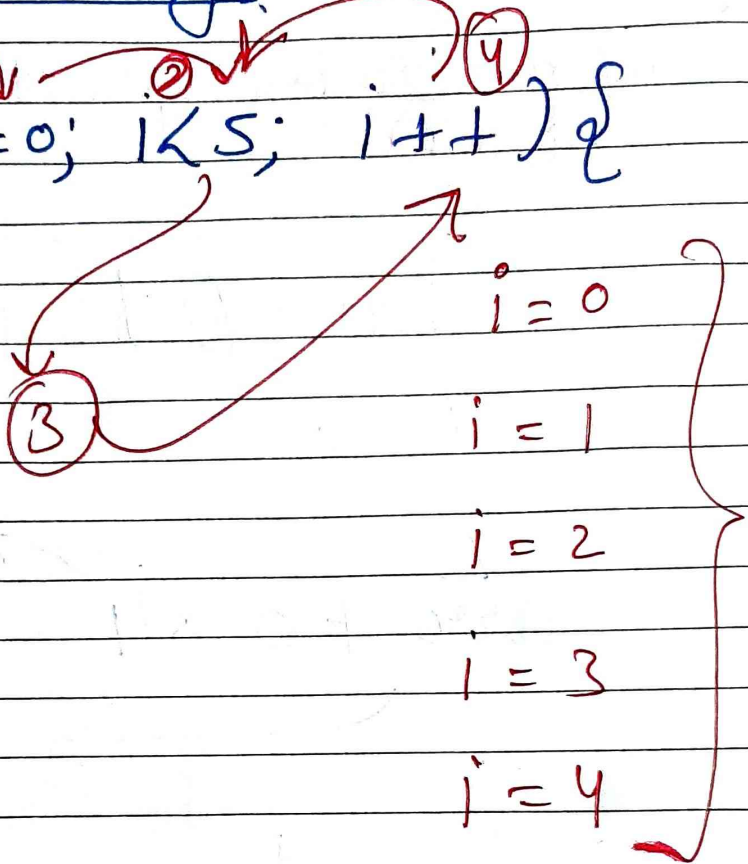 ② ④
=0; i<5; i++){
i = 0
③
i = 1
i = 2
i = 3
i = 4